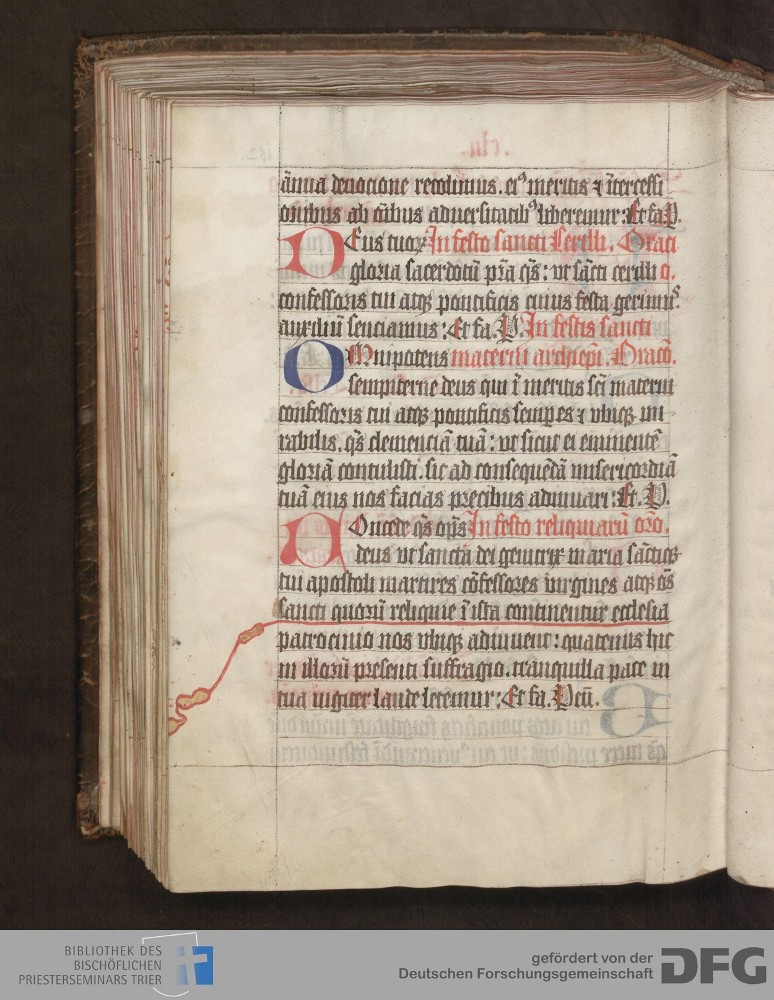 .clii.
ãnua deuocione recolimus. ei⁹ meritis ⁊ ĩtercessi
onibus ab oĩbus aduersitatib⁹ liberemur: Et fa. P.
DEus tuoꝝ In festo sancti Cerilli. Orati
gloria sacerdotũ pr̃a qs̃: vt sãcti cerilli o.
confessoris tui atqꝫ pontificis cuius festa gerimu⁹.
auxiliũ senciamus: Et fa. P. In festis sancti
OMnipotens materni archiep̃i. Oracõ.
sempiterne deus qui ĩ meritis sc̃i materni
confessoris tui atqꝫ pontificis semꝑ es ⁊ vbiqꝫ mi
rabilis. qs̃ clemenciã tuã: vt sicut ei eminentẽ
gloriã contulisti. sic ad consequẽdã misericordiã
tuã eius nos facias precibus adiuuari: Et. P.
COncede qs̃ op̃s In festo reliquiarũ oro.
deus vt sancta dei genitrix maria sãctiqꝫ
tui apostoli martires cõfessores virgines atqꝫ oẽs
sancti quorũ reliquie ĩ ista continentur ecclesia
patrocinio nos vbiqꝫ adiuuent: quatenus hic
in illorũ presenti suffragio. tranquilla pace in
tua iugiter laude letemur: Et fa. Peũ.
BIBLIOTHEK DES
BISCHÖFLICHEN
PRIESTERSEMINARS TRIER
gefördert von der
Deutschen Forschungsgemeinschaft DFG